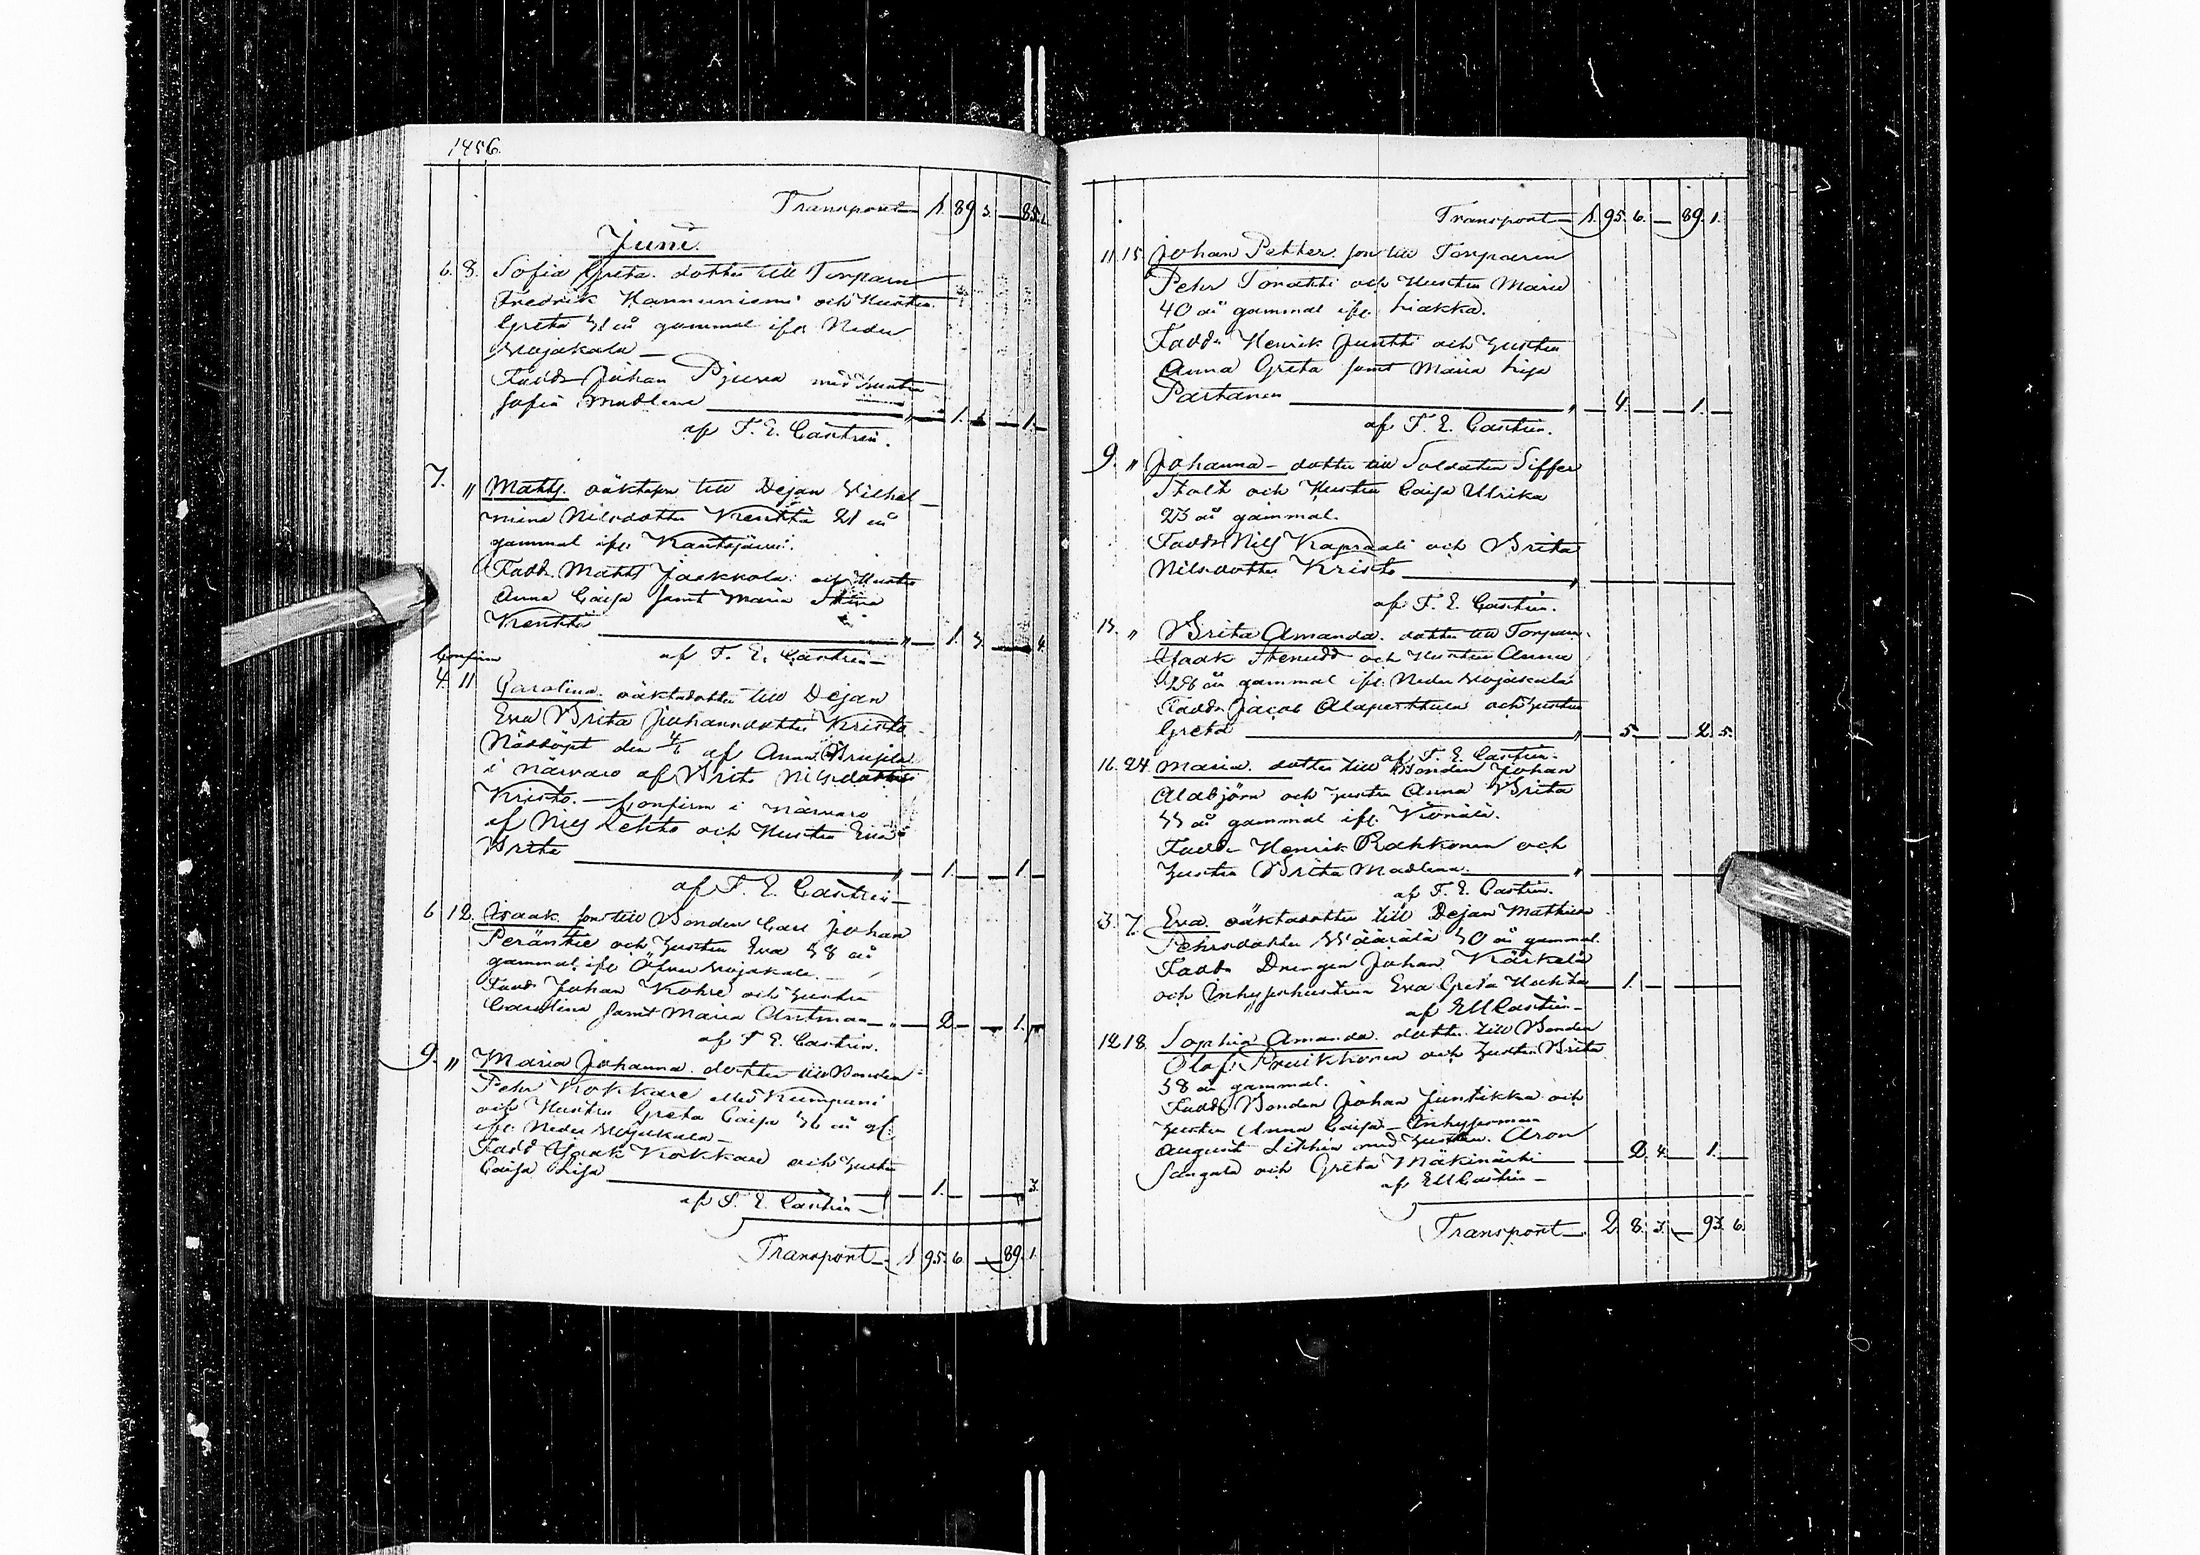 1856.
Transport 1. 89 3. — 85.
Juni.
6. 8. Sofia Greta. dotter till Torparn
Fredrik Hannuniemi och Hustru
Greta 31 år gammal ifr. Neder
Wojakala —
Fadd. Johan Pjuva med hustru
Sofia Madlena — 1. 1.
af F. E. Castrén.
7. " Matts. oäktason till Dejan Vilhel
mina Nilsdotter Kenttä 21 år
gammal ifr. Kantojärvi.
Fadd. Matts Jaakkola och Hustru
Anna Caisa samt Maria Stina
Kenttä — 1. 3. — 4.
af F. E. Castrén —
Confirm
4. 11 Carolina. oäktadotter till Dejan
Eva Brita Johansdotter Kristo
Nöddöpt den 4/6 af Anna
i närvaro af Brita Nilsdotter
Kristo. — Confirm i närvaro
af Nils Lehto och Hustru Eva
Brita — 1. — 1.
af F. E. Castrén —
6 12. Isaak. son till Bonden Carl Johan
Peräntie och hustru Eva 38 år
gammal ifr Öfver Wojakala. —
Fadd Johan Kohre och hustru
Carolina samt Maria — 2 — 1.
af F. E. Castrén.
9. " Maria Johanna. dotter till Bonden
Pehr Kokkare eller Kumpuni
och Hustru Greta Caisa 36 år gl:
ifr. Neder Wojakala —
Fadd Isaak Kokkare och hustru
Caisa Lisa — 1. — 3.
af F. E. Castrén —
Transport — 1 95. 6 — 89. 1.
Transport — 1. 95. 6. — 89. 1.
11. 15. Johan Petter. son till Torparen
Pehr och Hustru Maria
40 år gammal ifr. Liakka.
Fadd. Henrik Juntti och hustru
Anna Greta samt Maria Lisa
Partanen — 4. — 1. —
af F. E. Castrén.
9. " Johanna — dotter till Soldaten Siffer
Stolt och Hustru Caisa Ulrika
23 år gammal.
Fadd. Nils Kapraali och Brita
Nilsdotter Kristo —
af F. E. Castrén.
15. " Brita Amanda. dotter till Torparn
Isaak Stenudd och Hustru Anna
28 år gammal ifr. Neder Wojakala
Fadd. Jacob Alaperttula och hustru
Greta — 5. — 2. 5.
af F. E. Castrén.
16. 24. Maria. dotter till Bonden Johan
Alabjörn och hustru Anna Brita
33 år gammal ifr. Kiönälä.
Fadd. Henrik Rahkonen och
hustru Brita Madlena. —
af F. E. Castrén.
3. 7. Eva. oäktadotter till Dejan Mathilda
Pehrsdotter Määrälä 30 år gammal.
Fadd. Drengen Johan Kärkelä
och Inhyseshustrun Eva Greta Huhta — 1. —
af E M Castrén —
12 18. Sophia Amanda. dotter till Bonden
Olof och hustru Brita
38 år gammal.
Fadd. Bonden Johan Juntikka och
hustru Anna Caisa — Inhysesman
August med hustru. Aron
Sangala och Greta Mäkinärhi — 2. 4. — 1. —
af E M Castrén —
Transport — 2. 8. 3. — 93. 6.